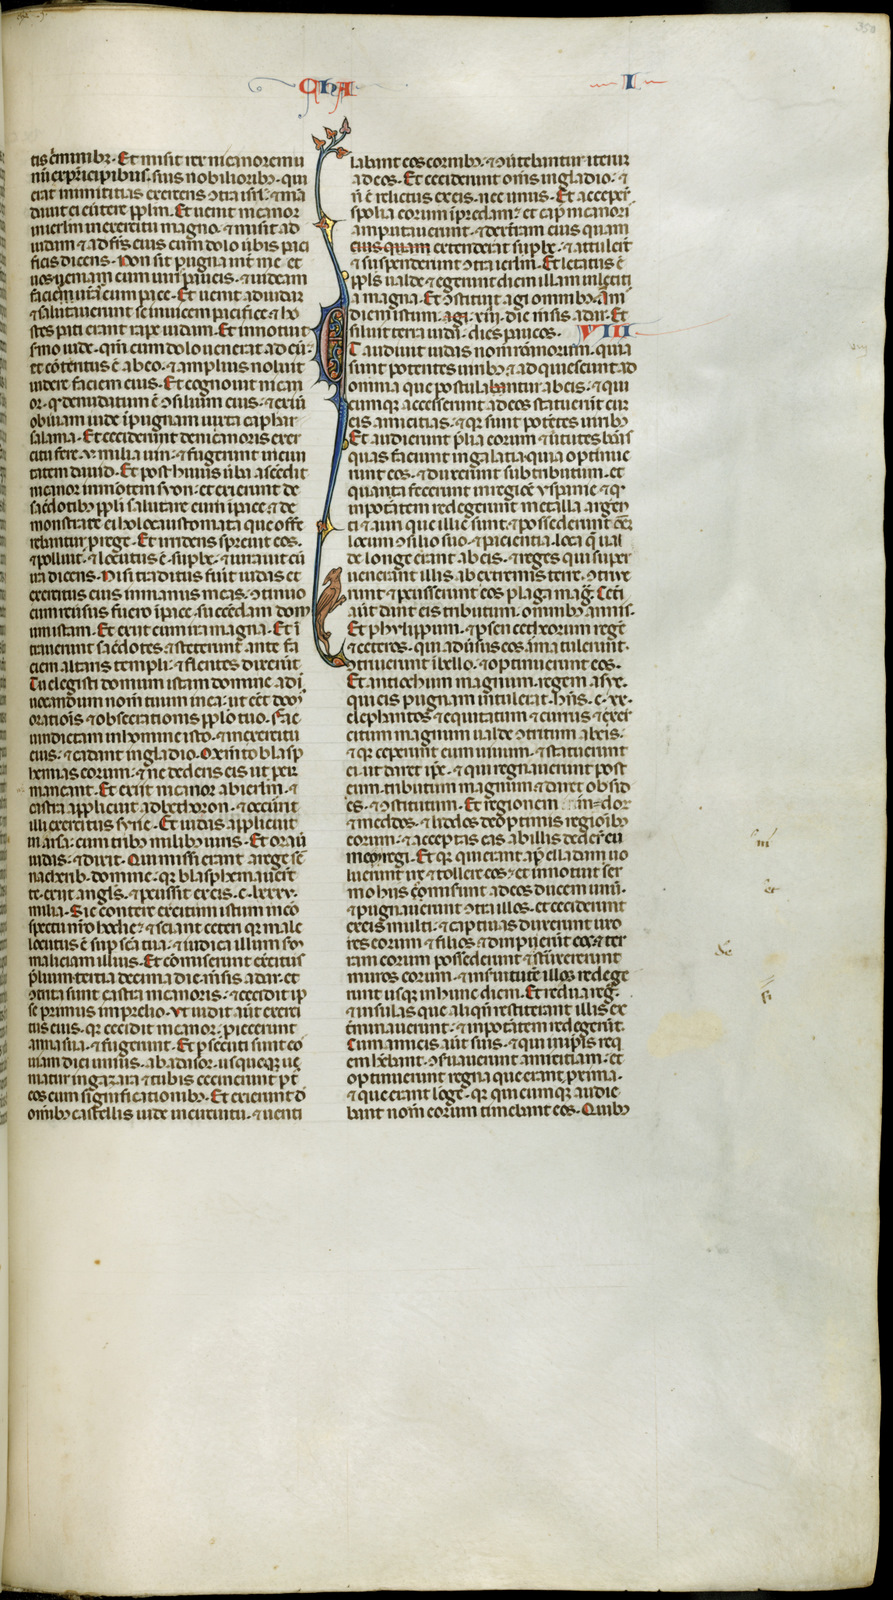 CHA I
tis ēminibꝫ. Et misit rex nicanorem u
nū ex pͥncipibus suis nobilioribꝫ. qui
erat inimicitias exercens ꝯtra isrl. ⁊ mā
davit ei ev̄tere pplm. Et venit nicanor
in ierlm in exercitu magno. ⁊ misit ad
iudam ⁊ ad fr̄s eius cum dolo v̄bis paci
ficis dicens. Non sit pugna int̄ me et
vos. veniam cum viris paucis. ⁊ videam
facies vr̄a cum pace. Et venit ad iudā
⁊ salutaverunt se invicem pacifice. ⁊ ho
stes pati erant rapē iudam. Et innotuit
s̄mo iude. qm̄ cum dolo venerat ad eū.
et cōterritus ē ab eo. ⁊ amplius noluit
videre faciem eius. Et cognovit nican
or. qꝫ denudatum ē ꝯsilium eius. ⁊ exiit
obviam iude ī pugnam iuxta caphar
salama. Et ceciderunt de nicanoris exer
citu fere. v. milia viri. ⁊ fugerunt in civi
tatem david. Et post huius v̄ba ascēdit
nicanor in montem syon. et exierunt de
sac̄dotibꝫ ppli salutare eum ī pace. ⁊ de
monstrare ei holocaustomata que offe
rebantur ꝓ rege. Et irridens sprevit eos.
⁊ polluit. ⁊ locutus ē suꝑbe. ⁊ iuravit cū
ira dicens. Nisi traditus fuit iudas et
exercitus eius in manus meas. ꝯtinuo
cum reversus fuero ī pace. succēdam dom
um istam. Et exiit cum ira magna. Et ī
traverunt sac̄dotes. ⁊ steterunt ante fa
ciem altaris templi. ⁊ flentes dixerūt
Tu elegisti domum istam domine ad ī
vocandum nom̄ tuum in ea. ut eēt dom
orationis ⁊ obsecrationis pplo tuo. Fac
vindictam in homine isto. ⁊ in exercitu
eius. ⁊ cadant in gladio. Memto blasp
hemias eorum. ⁊ ne dederis eis ut per
maneant. Et exiit nicanor ab ierlm. ⁊
castra applicuit ad bethoron. ⁊ occurrit
illi exercitus syrie. Et iudas applicuit
in arsa. cum tribꝫ milibꝫ viris. Et oravit
iudas. ⁊ dixit. Qui missi erant a rege se
nacherib. domine. qꝫ blasphemaverūt
te. exiit angls. ⁊ ꝑcussit ex eis. c. lxxxv.
milia. Sic contere exercitum istum in cō
spectu nr̄o hodie. ⁊ sciant ceteri qꝫ male
locutus ē sup scā tua. ⁊ iudica illum scdm
maliciam illius. Et cōmiserunt exercitus
p̄lium. tertia decima die mēsis adar. et
ꝯtrita sunt castra nicanoris. ⁊ cecidit ip̄
se primus in prelio. Ut vidit aut̄ exerci
tus eius. qꝫ cecidit nicanor. ꝓiecerunt
arma sua. ⁊ fugerunt. Et ꝑsecuti sunt eo
viam diei unius. ab adasor. usquequo ve
niatur in gazara. ⁊ tubis cecinerunt pꝰt
eos cum significationibꝫ. Et exierunt d̄
omībꝫ castellis iude in circuitu. ⁊ venti
labant eos cornibꝫ. ⁊ ꝯv̄tebantur iterum
ad eos. Et ceciderunt om̄s in gladio. ⁊
n̄ ē relictus ex eis. nec unus. Et acceper̄
spolia eorum ī predam. ⁊ caput nicanori
amputaverunt. ⁊ dextram eius quam
eius quam extenderat supbe. ⁊ attulert̄
⁊ suspenderunt ꝯtra ierlm. Et letatus ē
ppls valde ⁊ egerunt diem illam in letici
a magna. Et ꝯstituit agi omnibꝫ annis
diem istum. agi. xiii. die mēsis adar. Et
siluit terra iuda dies paucos. VIII
Et audivit iudas nom̄ romanorum. quia
sunt potentes viribꝫ. ⁊ adquiescunt ad
omnia que postulabantur ab eis. ⁊ qui
cumque accesserunt ad eos statuerūt cum
eis amicitias. ⁊ qꝫ sunt potētes viribꝫ
Et audierunt p̄lia eorum ⁊ v̄tutes bōas
quas faciunt in galatia. quia optinue
runt eos. ⁊ duxerunt sub tributum. et
quanta fecerunt in regione yspanie. ⁊ qꝫ
in potātem redegerunt metalla argen
ti ⁊ auri que illic sunt. ⁊ possederunt om̄em
locum ꝯsilio suo. ⁊ paciencia. loca q̄ val
de longe erant ab eis. ⁊ reges qui super
venerant illis ab extremis terre. ꝯtrive
runt ⁊ ꝑcusserunt eos plaga mag̃. Cet̄i
aūt dant eis tributum. omnibꝫ annis.
Et phylippum. ⁊ ꝑsen cetheorum regē
⁊ ceteros. qui adv̄sus eos arma tulerunt.
ꝯtriverunt ī bello. ⁊ optinuerunt eos.
Et antiochum magnum regem asye.
qui eis pugnam intulerat. hn̄s. c. xx.
elephantos ⁊ equitatum ⁊ currus ⁊ exer
citum magnum valde ꝯtritum ab eis.
⁊ qꝫ ceperunt eum vivum. ⁊ statuerunt
ei. ut daret ip̄e. ⁊ qui regnaverunt post
eum. tributum magnum. ⁊ daret obsid
es. ⁊ ꝯstitutum. Et regionem indor
⁊ medos. ⁊ lydos de optimis regioībꝫ
eorum. ⁊ acceptas eas ab illis dederūt eu
meni regi. Et qꝫ qui erant ap̄ elladam vo
luerunt ire ⁊ tollere eos. et innotuit ser
mo hiis ⁊ miserunt ad eos ducem unū.
⁊ pugnaverunt ꝯtra illos. et ceciderunt
ex eis multi. ⁊ captivas duxerunt uxo
res eorum ⁊ filios ⁊ diripuerūt eos. ⁊ ter
ram eorum possederunt. ⁊ destruxerunt
muros eorum. ⁊ in servitutē illos redege
runt usque in hunc diem. Et residua reg̃.
⁊ insulas que aliqn̄ restiterant illis ex
t̄minaverunt. ⁊ in potātem redegerūt.
Cum amicis aūt suis. ⁊ qui in ip̄is req
em hēbant. ꝯservaverunt amicitiam. et
optinuerunt regna que erant proxima.
⁊ que erant longe. qꝫ quicumque audie
bant nom̄ eorum timebant eos. Quibꝫ